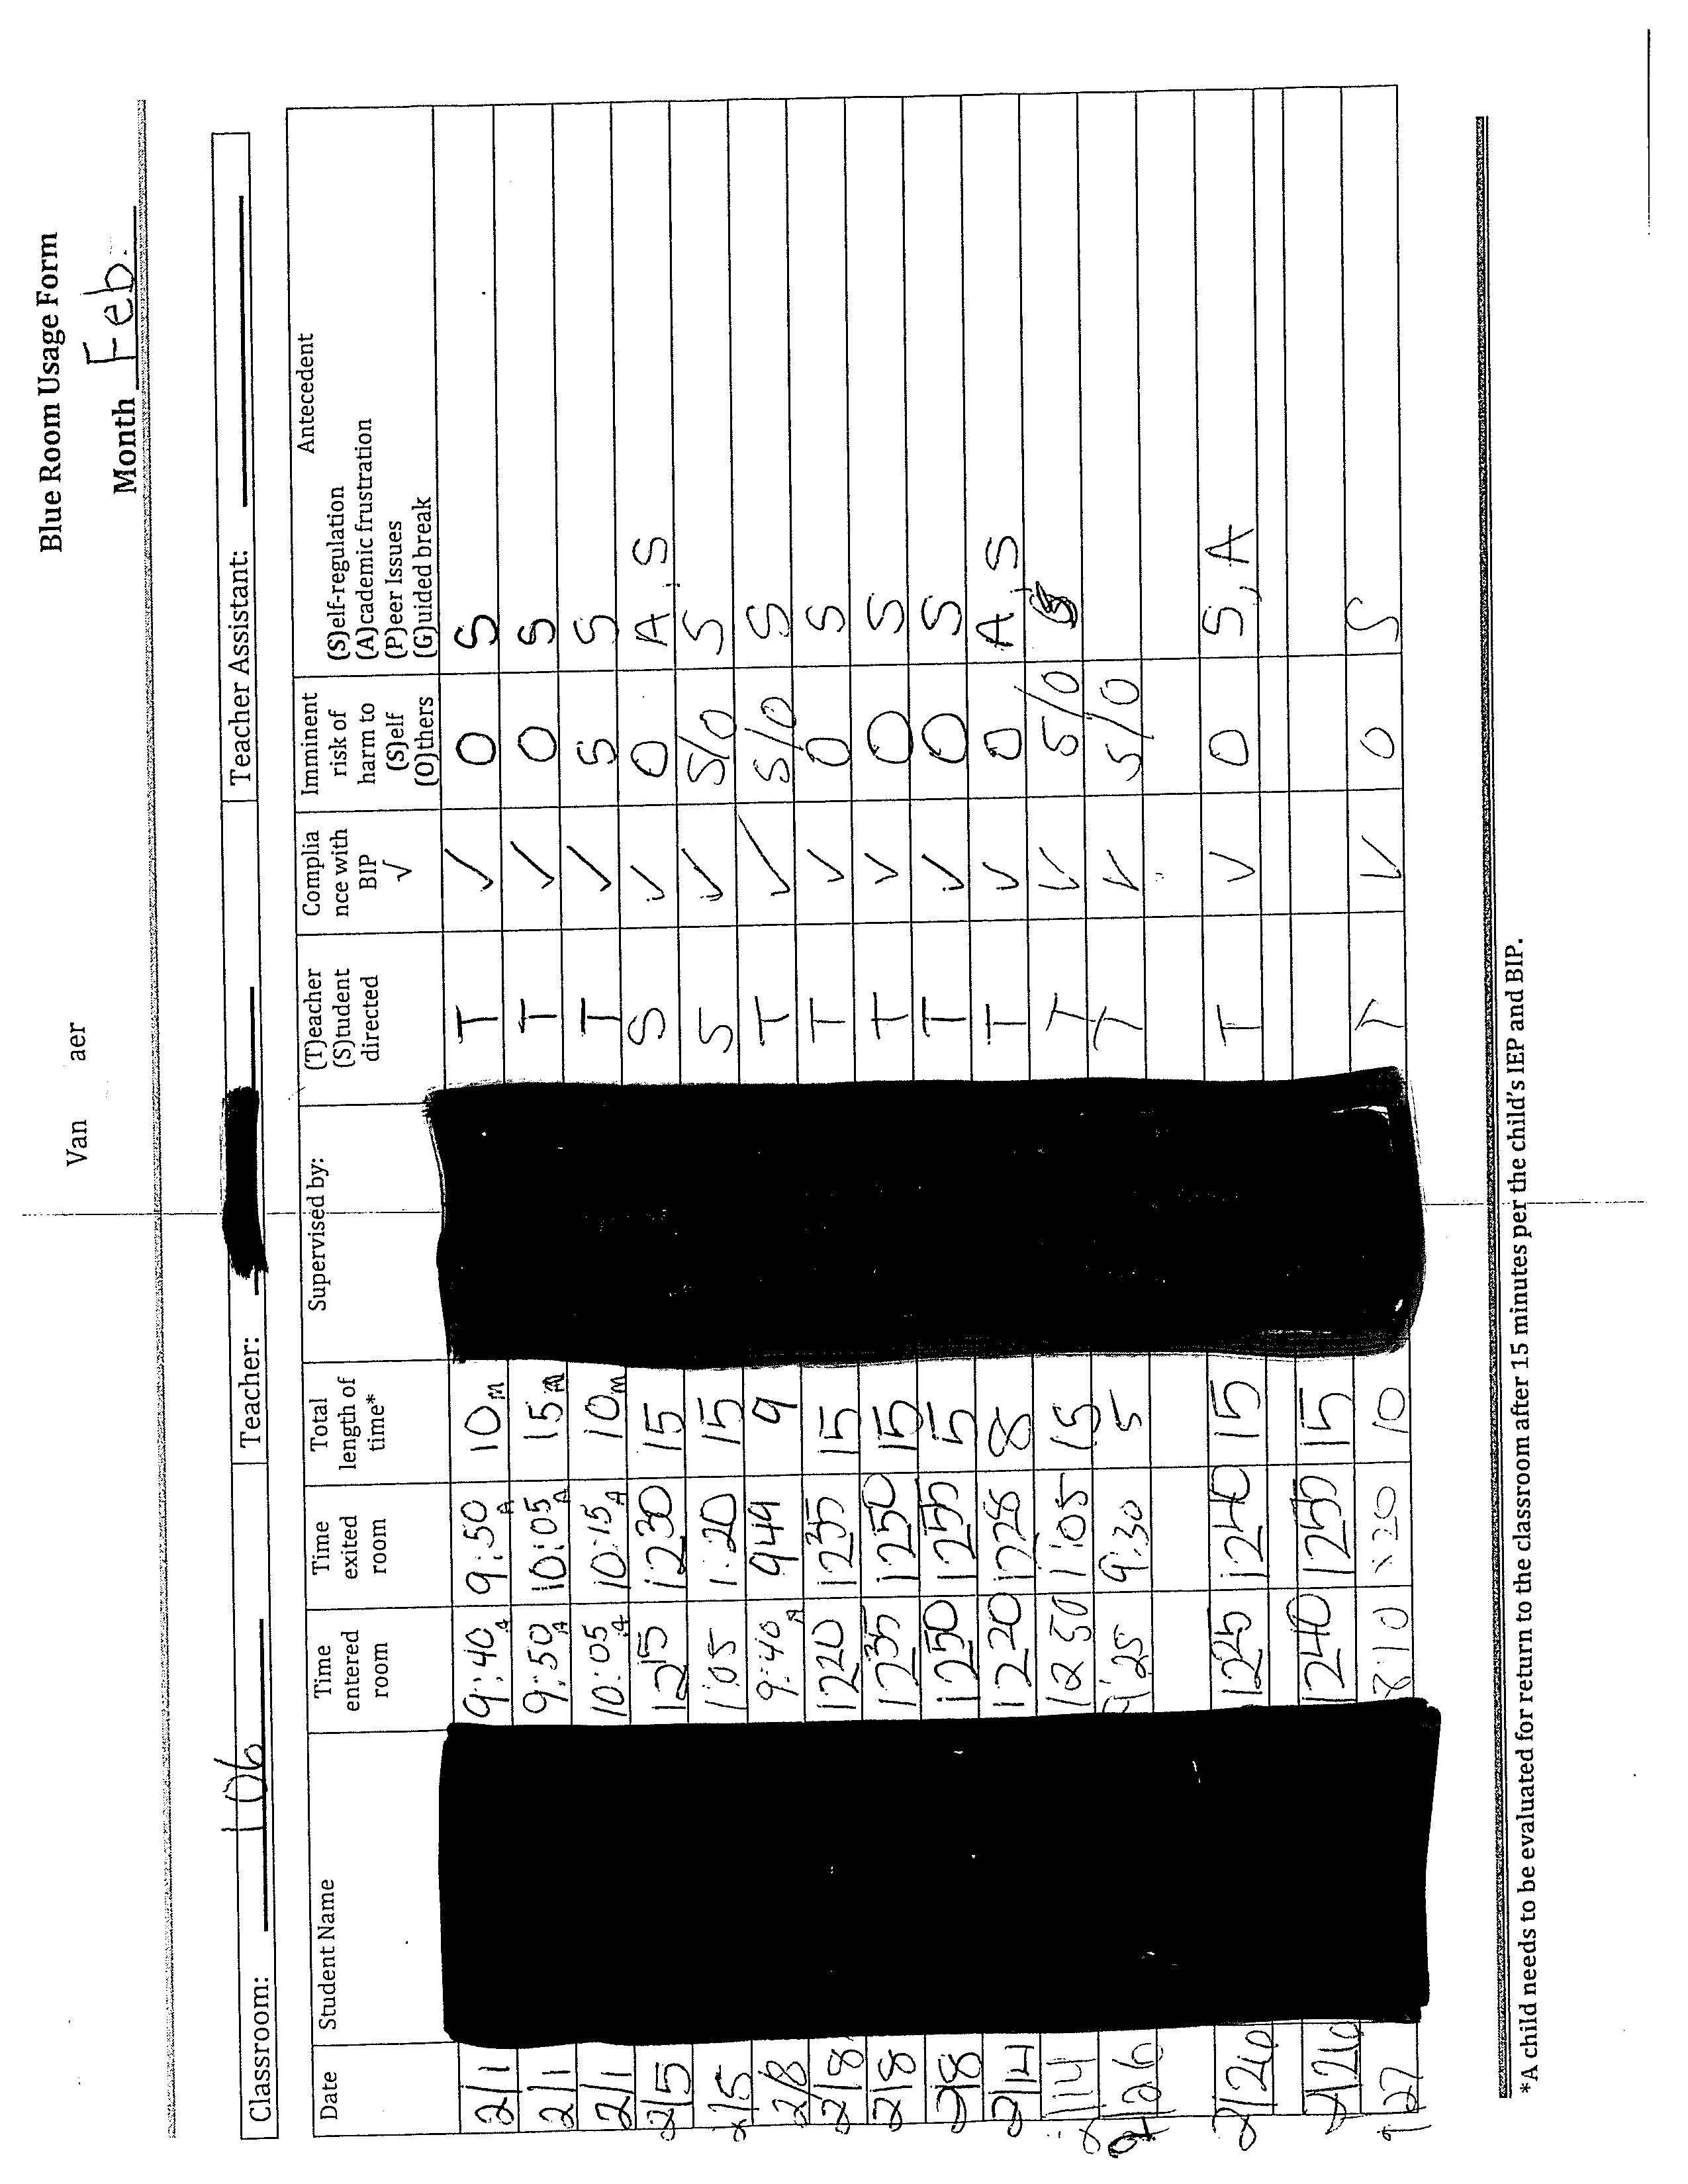 Blue Room Usage Form
Van aer
Month Feb.
Classroom: 106 Teacher: Teacher Assistant:
Date Student Name Time entered room Time exited room Total length of time* Supervised by: (T)eacher (S)tudent directed Complia nce with BIP √ Imminent risk of harm to (S)elf (O)thers Antecedent (S)elf-regulation (A)cademic frustration (P)eer Issues (G)uided break
2/1 9:40 A 9:50 A 10 m T ✓ O S
2/1 9:50 A 10:05 A 15 m T ✓ O S
2/1 10:05 A 10:15 A 10 m T ✓ S S
2/5 1215 1230 15 S ✓ O A, S
2/5 1:05 1:20 15 S ✓ S/O S
2/8 9:40 A 949 9 T ✓ S/O S
2/8 1220 1235 15 T ✓ O S
2/8 1235 1250 15 T ✓ O S
2/8 1250 1255 5 T ✓ O S
2/14 1220 1228 8 T ✓ O A, S
2/14 1250 1:05 15 T ✓ S/O S
2/26 9:25 9:30 5 T ✓ S/O
2/26 1225 1240 15 T ✓ O S, A
2/26 1240 1255 15
27 :10 :20 10 T ✓ O S
*A child needs to be evaluated for return to the classroom after 15 minutes per the child's IEP and BIP.